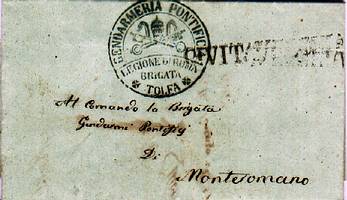 GENDARMERIA PONTIFICIA
LEGIONE DI ROMA
BRIGATA
TOLFA
Al Comando la Brigata
Gendarmi
Di
Monteromano